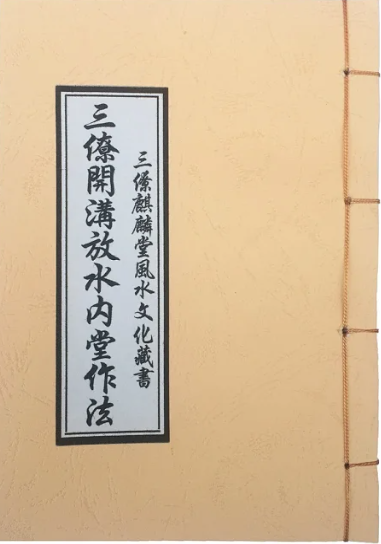 三僚麒麟堂風水文化藏書
三僚開溝放水内堂作法